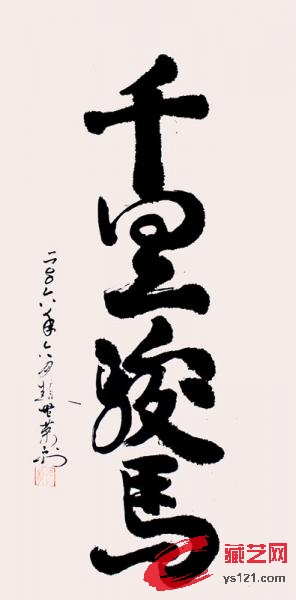 千里駿馬
二〇〇六年六月
藏艺网
ys121.com